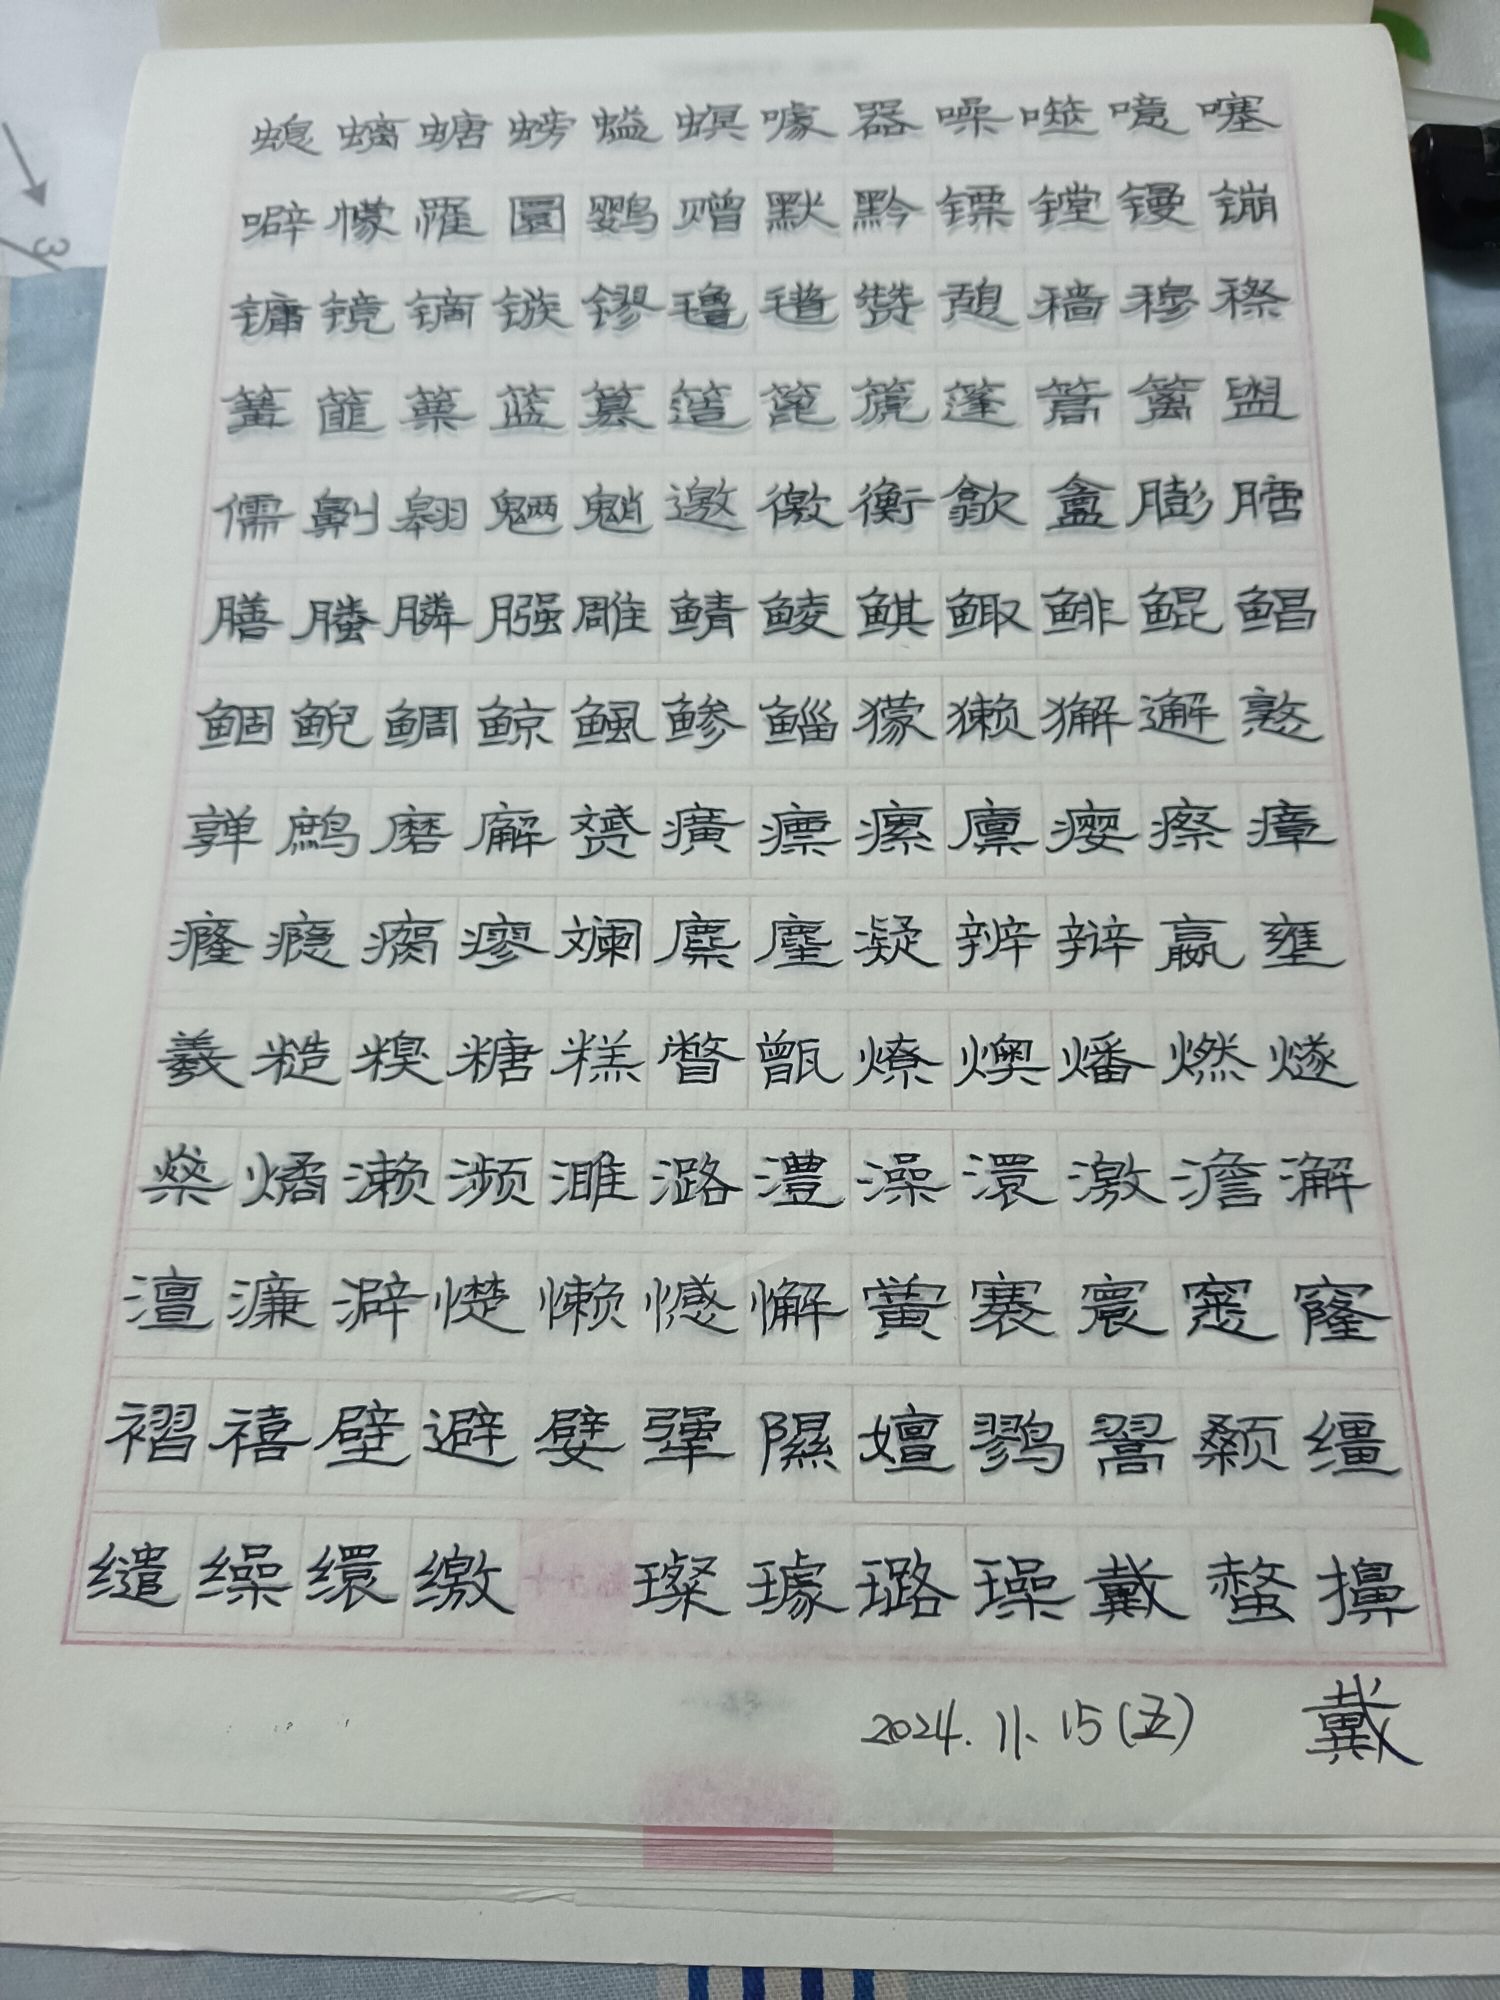 螅螭螗螃螠螟噱器噪噬噫噻
噼幪罹圜鹦赠默黔镖镗镘镚
镛镜镝镞镠氇氆赞憩穑穆穄
篝篚篥篮篡簉篦篪篷簑篱盥
儒劓翱魉魈邀徼衡歙盦膨膪
膳螣膦膙雕鲭鲮鲯鲰鲱鲲鲳
鲴鲵鲷鲸鲺鲹鲻獴獭獬邂憝
亸鹧磨廨赟癀瘭瘰廪瘿瘵瘴
癃瘾瘸瘳斓麇麈凝辨辩嬴壅
羲糙糗糖糕瞥甑燎燠燔燃燧
燊燏濑濒濉潞澧澡澴激澹澥
澶濂澼憷懒憾懈黉褰寰窸窿
褶禧壁避嬖犟隰嬗鹨翯颡缰
缱缲缳缴 十七画 璨璩璐璪戴螯擤
2024.11.15(五) 戴
3